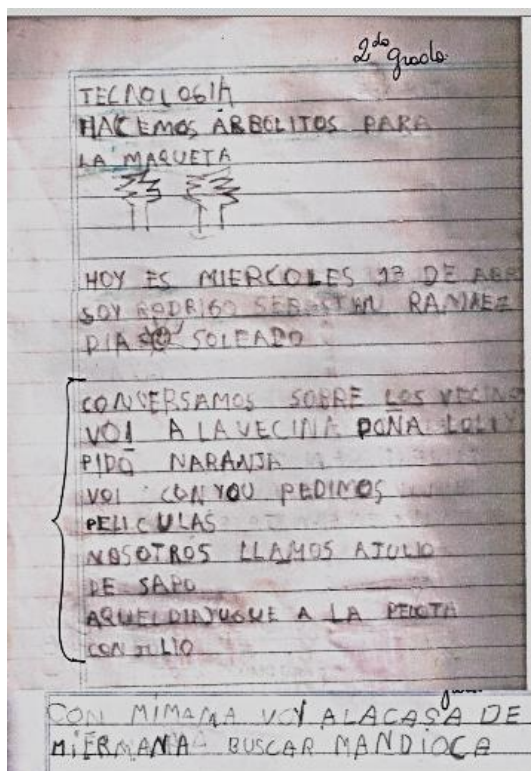 2do grado
TECNOLOGIA
HACEMOS ARBOLITOS PARA
LA MAQUETA
HOY ES MIERCOLES 13 DE ABR
SOY RODRIGO SEBASTIAN RAMIREZ
DIA SOLEADO
CONVERSAMOS SOBRE LOS VECINOS
VOI A LAVECINA DOÑA LOLI
PIDO NARANJA
VOI CON YOU PEDIMOS
PELICULAS
NOSOTROS LLAMOS AJULIO
DE SAPO
AQUELDIAJUGUE A LA PELOTA
CON JULIO
CON MIMAMA VOY ALACASA DE
MIERMANA BUSCAR MANDIOCA